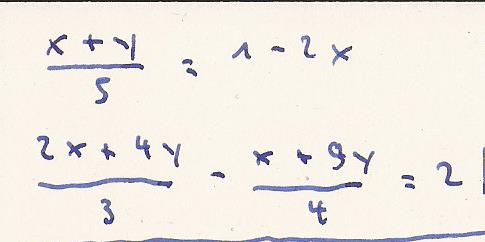 x + y / 5 = 1 - 2x
2x + 4y / 3 - x + 9y / 4 = 2